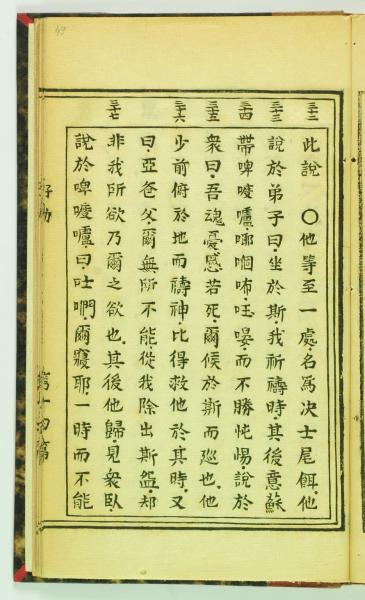 49
三十二 此說 〇他等至一處名爲决士尾餌他
三十三 說於弟子曰坐於斯我祈禱時其後意蘇
三十四 帶啤嘜嚧㖿嗰咘𠱸晏而不勝忳惕說於
三十五 衆曰吾魂憂慼若死爾候於斯而廵也他
三十六 少前俯於地而禱神比得救他於其時又
曰亞爸父爾無所不能從我除出斯盌却
三十七 非我所欲乃爾之欲也其後他歸見衆臥
說於啤嘜嚧曰吐㗃爾寢耶一時而不能
第十四篇